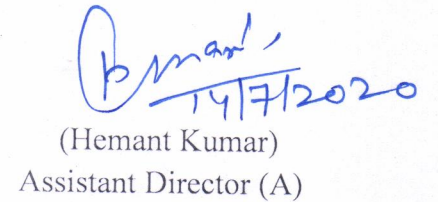 14/7/2020
(Hemant Kumar)
Assistant Director (A)